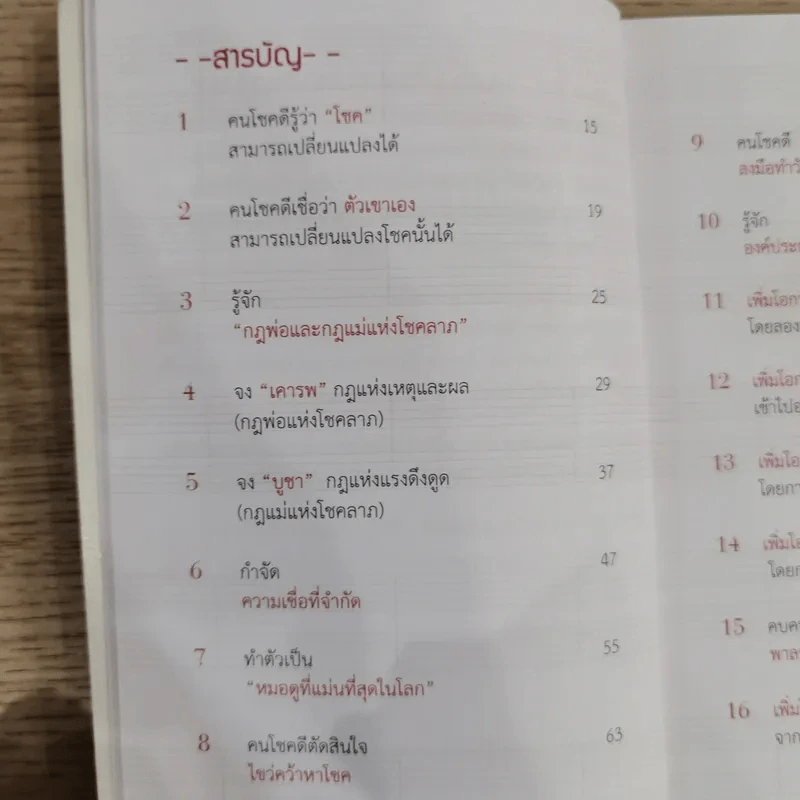 - -สารบัญ- -
1 คนโชคดีรู้ว่า “โชค” 15
สามารถเปลี่ยนแปลงได้
2 คนโชคดีเชื่อว่า ตัวเขาเอง 19
สามารถเปลี่ยนแปลงโชคนั้นได้
3 รู้จัก 25
“กฎพ่อและกฎแม่แห่งโชคลาภ”
4 จง “เคารพ” กฎแห่งเหตุและผล 29
(กฎพ่อแห่งโชคลาภ)
5 จง “บูชา” กฎแห่งแรงดึงดูด 37
(กฎแม่แห่งโชคลาภ)
6 กำจัด 47
ความเชื่อที่จำกัด
7 ทำตัวเป็น 55
“หมอดูที่แม่นที่สุดในโลก”
8 คนโชคดีตัดสินใจ 63
ไขว่คว้าหาโชค
9 คนโชคดี
ลงมือทำ
10 รู้จัก
11 เพิ่ม
โดยลอง
12 เพิ่ม
เข้าไป
13 เพิ่ม
14 เพิ่ม
15
16 เพิ่ม
จาก